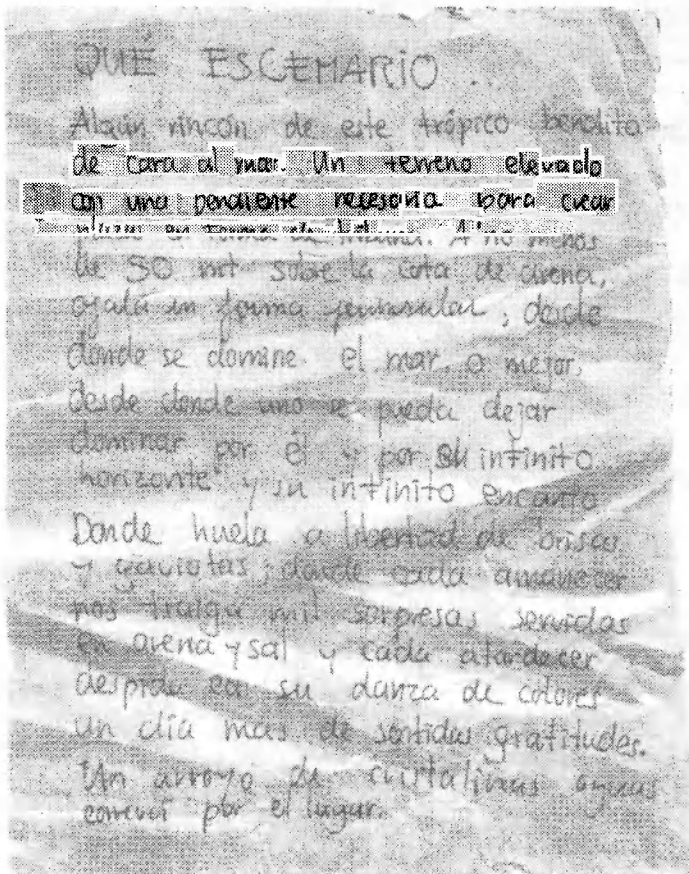 QUÉ ESCENARIO ..
Algún rincón de este trópico bendito
de cara al mar. Un terreno elevado
con una pendiente necesaria para crear
en forma de . A no menos
de 50 mt sobre la cota de arena,
ojalá en forma peninsular, desde
donde se domine el mar, o mejor,
desde donde uno se pueda dejar
dominar por él y por su infinito
horizonte y su infinito encanto
Donde huela a libertad de brisas
y gaviotas; donde cada amanecer
nos traiga mil sorpresas servidas
en arena y sal y cada atardecer
despida en su danza de colores
un día mas de sentidas gratitudes.
Un arroyo de cristalinas aguas
correrá por el lugar.